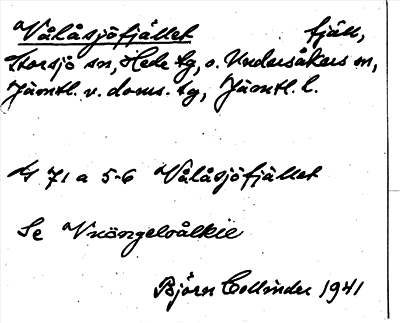 Vålåsjöfjället fjäll,
Storsjö sn, Hede tg, o. Undersåkers sn,
Jämtl. v. doms. tg, Jämtl. l.
G 71 a 5-6 Vålåsjöfjället
Se Vxöngelvålkie
Björn Collinder 1941